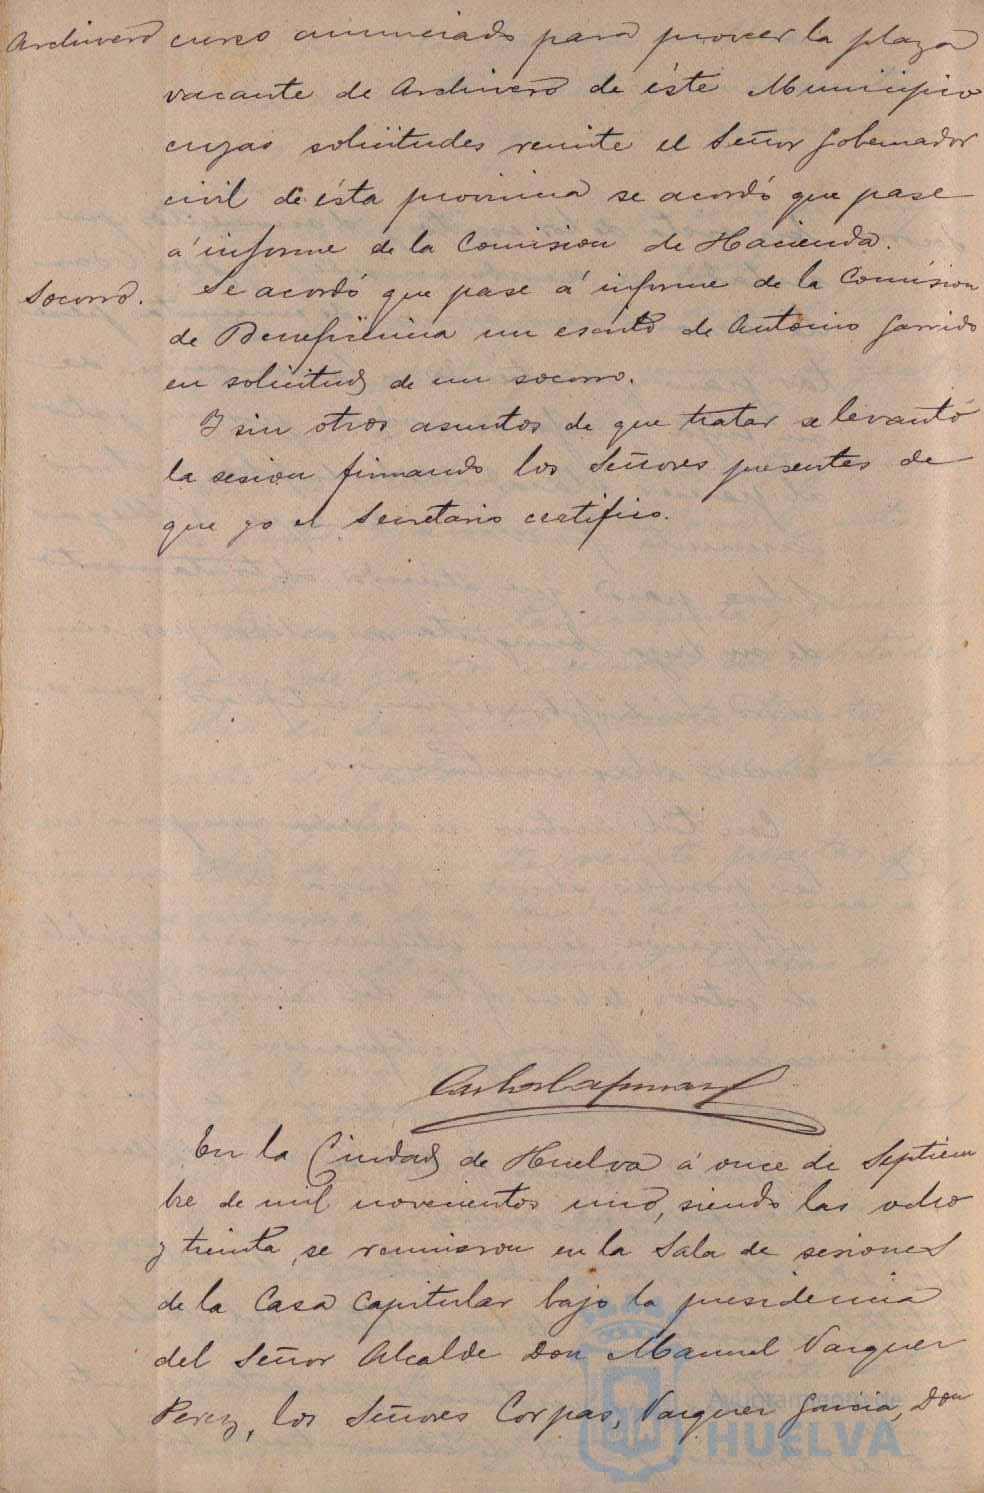 Archivero curso anunciado para proveer la plaza
vacante de Archivero de éste Municipio
cuyas solicitudes remite el Señor Gobernador
civil de ésta provincia se acordó que pase
á informe de la Comision de Hacienda.
Socorro. Se acordó que pase á informe de la Comision
de Beneficencia un escrito de Antonio Garrido
en solicitud de un socorro.
Y sin otros asuntos de que tratar se levantó
la sesion firmando los Señores presentes de
que yo el Secretario certifico.
En la Ciudad de Huelva á once de Septiem
bre de mil novecientos uno, siendo las ocho
y treinta, se reunieron en la Sala de sesiones
de la Casa Capitular bajo la presidencia
del Señor Alcalde Don Manuel Vazquez
Perez, los Señores Corpas, Vazquez Garcia, Don
Ayuntamiento de
HUELVA